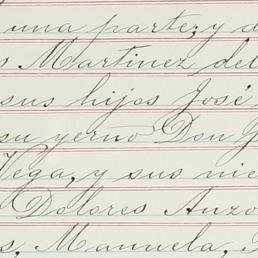 una parte, y d
s Martinez del
sus hijos José
su yerno Don J
Vega, y sus nie
Dolores Anzo
s, Manuela, I